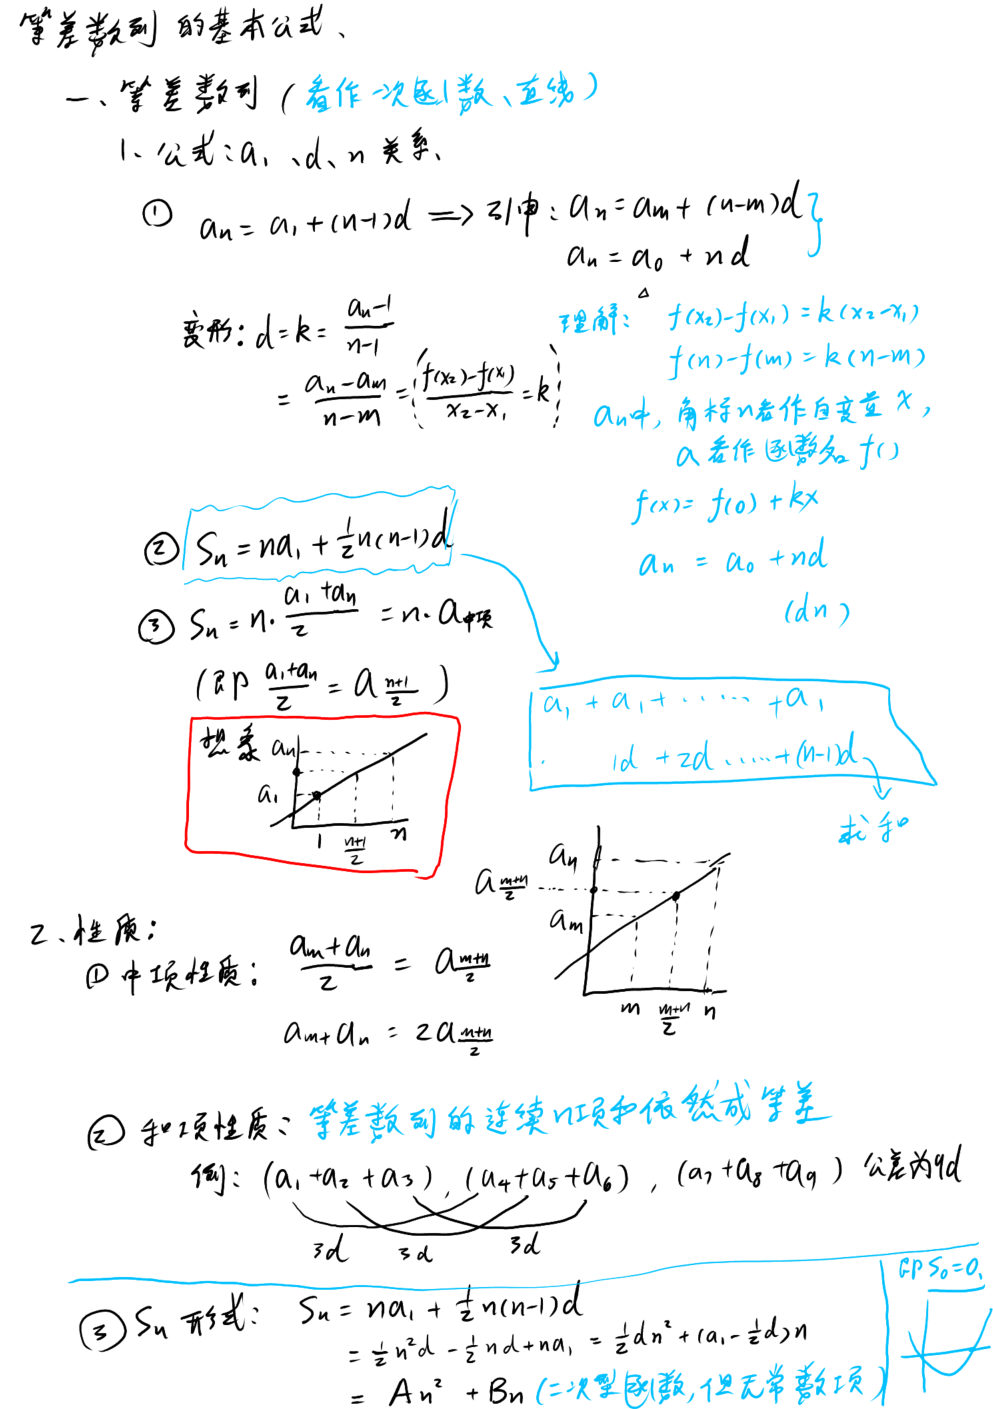 等差数列 的基本公式、
一、等差数列（看作一次函数、直线）
1、公式：a₁、d、n 关系、
① aₙ = a₁ + (n-1)d ⟹ 引申：aₙ = aₘ + (n-m)d
aₙ = a₀ + nd
变形：d = k = \frac{aₙ-1}{n-1}
= \frac{aₙ-aₘ}{n-m} = ( \frac{f(x₂)-f(x₁)}{x₂-x₁} = k )
理解： f(x₂)-f(x₁) = k(x₂-x₁)
f(n)-f(m) = k(n-m)
aₙ中，角标n看作自变量 x，
a 看作函数名 f( )
f(x) = f(0) + kx
aₙ = a₀ + nd
(dn)
② Sₙ = na₁ + \frac{1}{2}n(n-1)d
③ Sₙ = n · \frac{a₁+aₙ}{2} = n · a中项
(即 \frac{a₁+aₙ}{2} = a_{\frac{n+1}{2}})
a₁ + a₁ + ······ + a₁
1d + 2d ······ + (n-1)d
求和
想象
aₙ
a₁
1 \frac{n+1}{2} n
aₙ
a_{\frac{m+n}{2}}
aₘ
m \frac{m+n}{2} n
2、性质：
① 中项性质： \frac{aₘ+aₙ}{2} = a_{\frac{m+n}{2}}
aₘ + aₙ = 2a_{\frac{m+n}{2}}
② 和项性质：等差数列的连续n项和依然成等差
例：(a₁+a₂+a₃)，(a₄+a₅+a₆)，(a₇+a₈+a₉) 公差为9d
3d 3d 3d
③ Sₙ 形式： Sₙ = na₁ + \frac{1}{2}n(n-1)d
= \frac{1}{2}n²d - \frac{1}{2}nd + na₁ = \frac{1}{2}dn² + (a₁ - \frac{1}{2}d)n
= An² + Bn (二次型函数，但无常数项)
即 S₀=0、